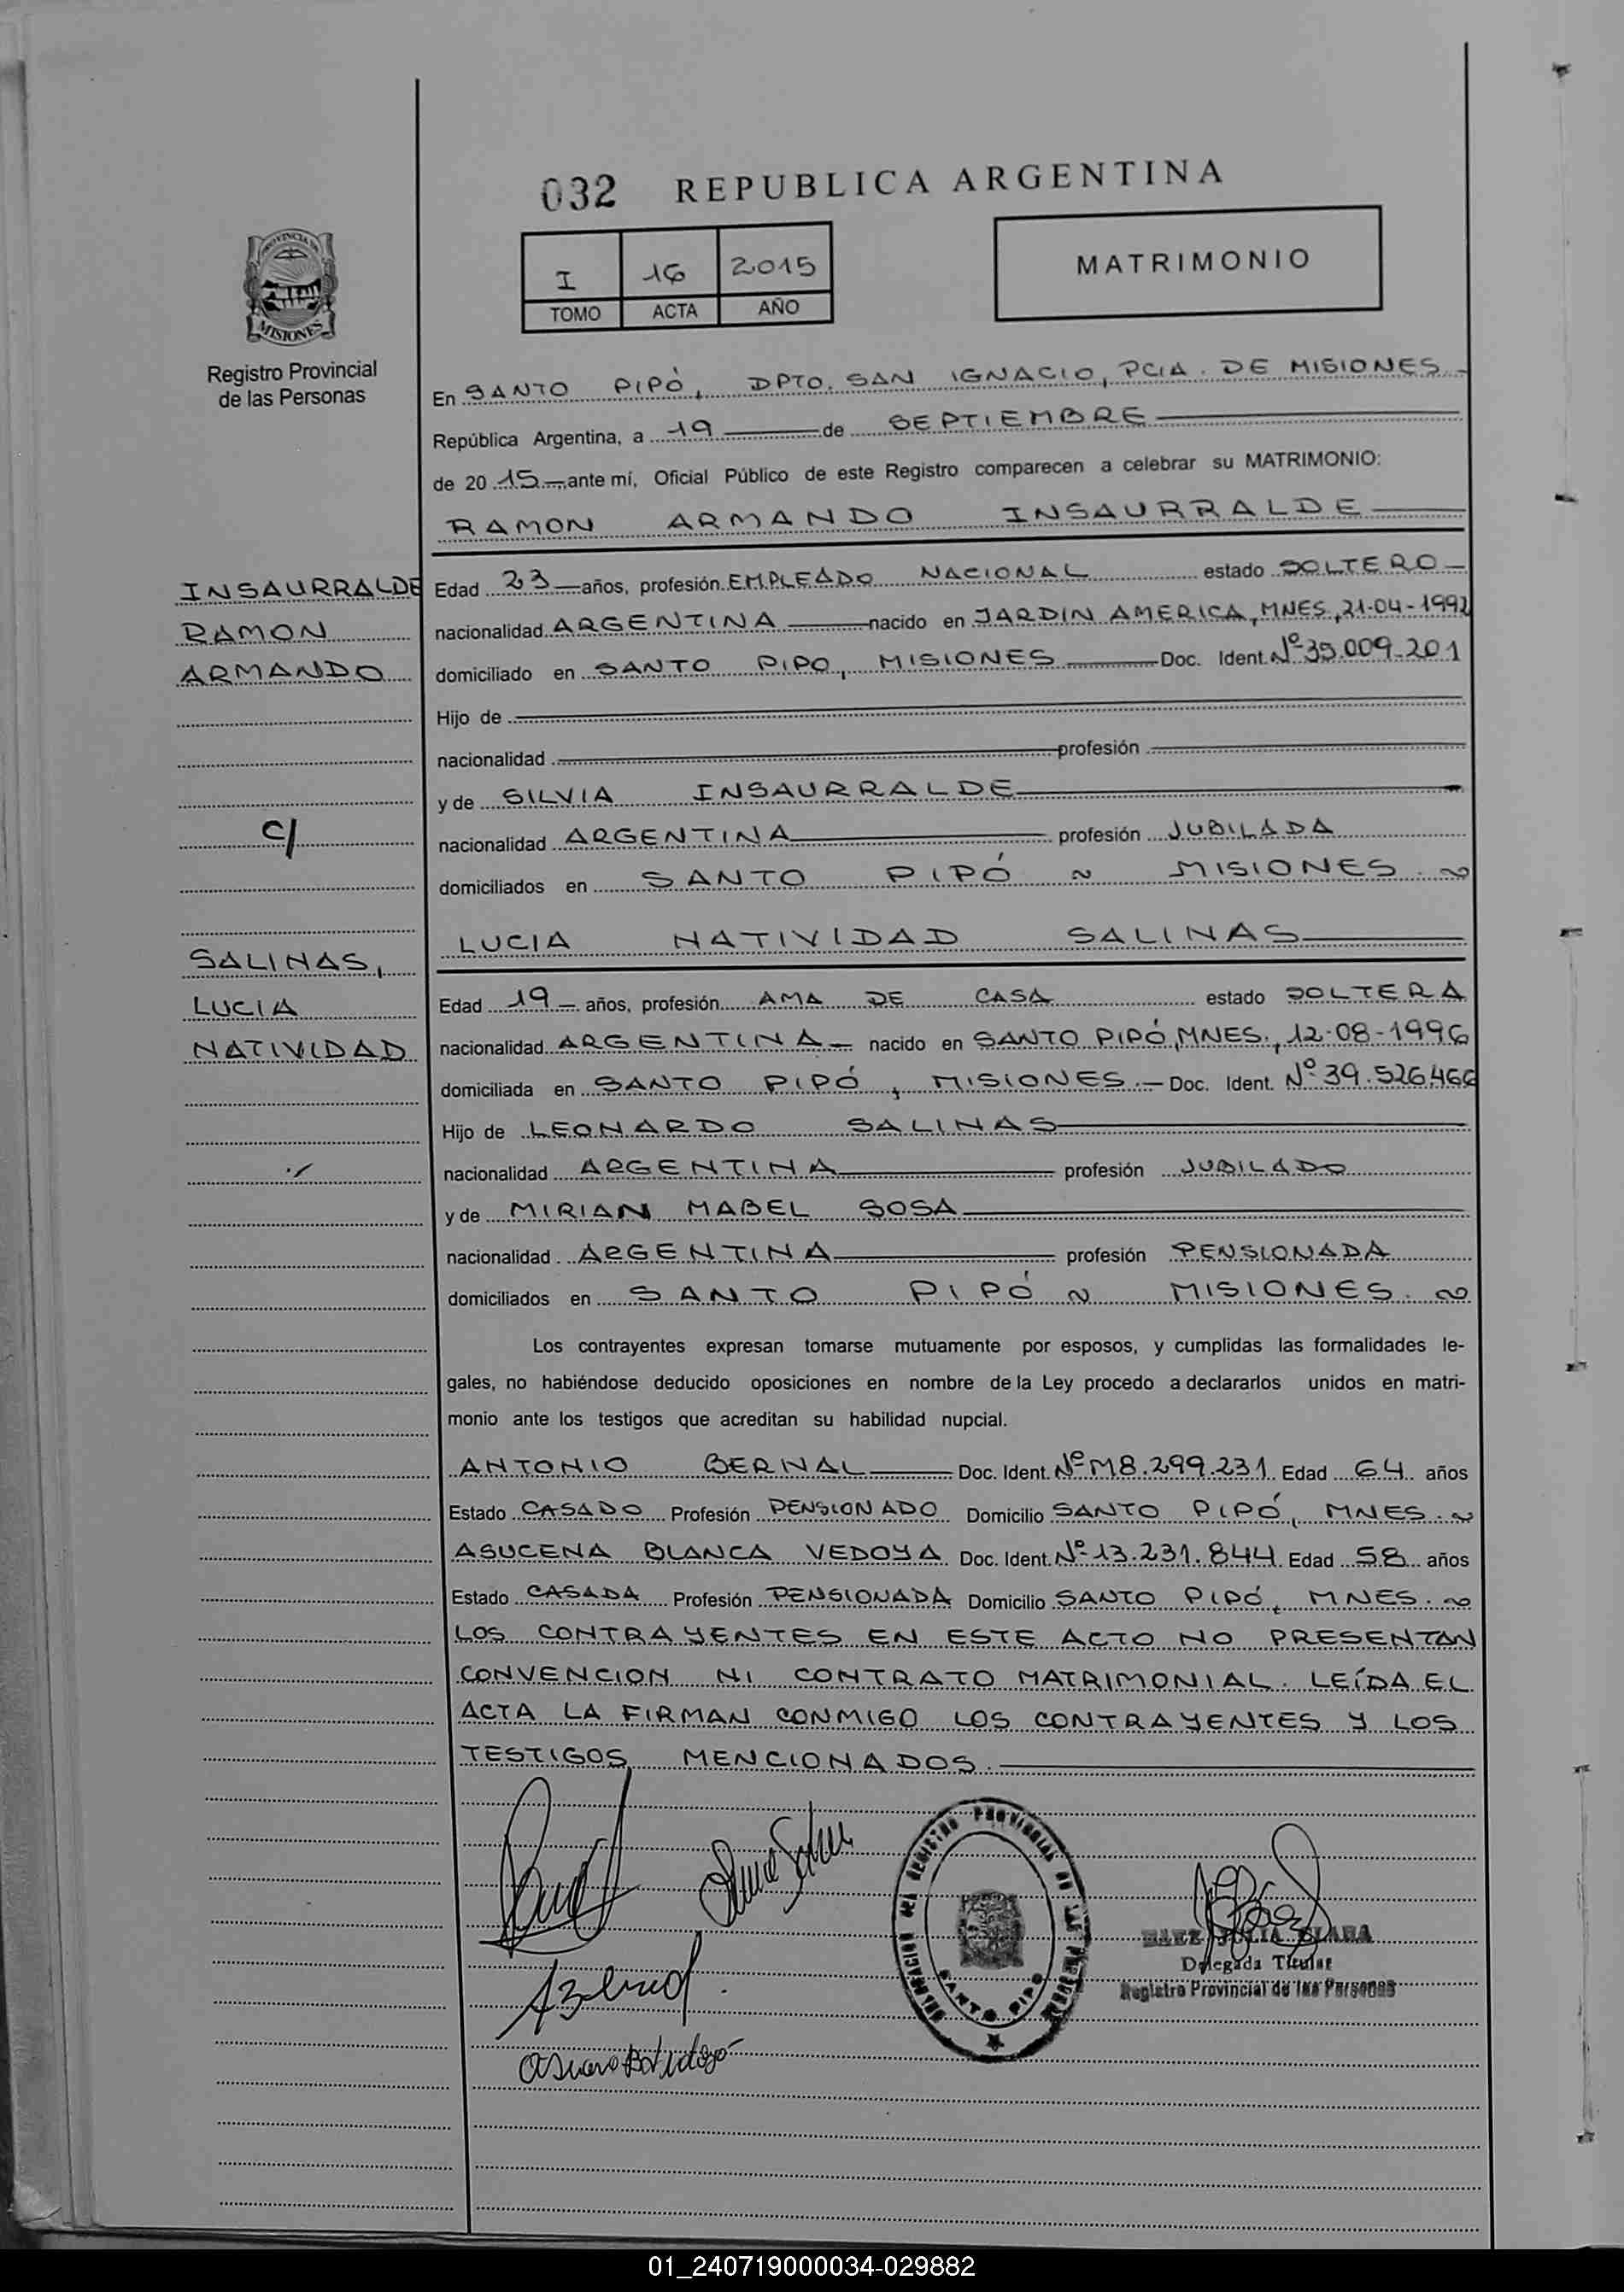 032 REPUBLICA ARGENTINA
I 16 2015
TOMO ACTA AÑO
MATRIMONIO
PROVINCIA DE
MISIONES
Registro Provincial
de las Personas
En SANTO PIPÓ, DPTO. SAN IGNACIO, PCIA. DE MISIONES
República Argentina, a 19 de SEPTIEMBRE
de 2015 ante mí, Oficial Público de este Registro comparecen a celebrar su MATRIMONIO:
RAMON ARMANDO INSAURRALDE
INSAURRALDE
RAMON
ARMANDO
C/
SALINAS,
LUCIA
NATIVIDAD
Edad 23 años, profesión EMPLEADO NACIONAL estado SOLTERO
nacionalidad ARGENTINA nacido en JARDIN AMERICA, MNES, 21-04-1992
domiciliado en SANTO PIPO, MISIONES Doc. Ident. Nº 35.009.201
Hijo de
nacionalidad profesión
y de SILVIA INSAURRALDE
nacionalidad ARGENTINA profesión JUBILADA
domiciliados en SANTO PIPÓ ~ MISIONES. ~
LUCIA NATIVIDAD SALINAS
Edad 19 años, profesión AMA DE CASA estado SOLTERA
nacionalidad ARGENTINA nacido en SANTO PIPÓ, MNES., 12-08-1996
domiciliada en SANTO PIPÓ, MISIONES. Doc. Ident. Nº 39.526.466
Hijo de LEONARDO SALINAS
nacionalidad ARGENTINA profesión JUBILADO
y de MIRIAN MABEL SOSA
nacionalidad ARGENTINA profesión PENSIONADA
domiciliados en SANTO PIPÓ ~ MISIONES. ~
Los contrayentes expresan tomarse mutuamente por esposos, y cumplidas las formalidades le-
gales, no habiéndose deducido oposiciones en nombre de la Ley procedo a declararlos unidos en matri-
monio ante los testigos que acreditan su habilidad nupcial.
ANTONIO BERNAL Doc. Ident. Nº M8.299.231 Edad 64 años
Estado CASADO Profesión PENSIONADO Domicilio SANTO PIPÓ, MNES. ~
ASUCENA BLANCA VEDOYA Doc. Ident. Nº 13.231.844 Edad 58 años
Estado CASADA Profesión PENSIONADA Domicilio SANTO PIPÓ, MNES. ~
LOS CONTRAYENTES EN ESTE ACTO NO PRESENTAN
CONVENCION NI CONTRATO MATRIMONIAL. LEÍDA EL
ACTA LA FIRMAN CONMIGO LOS CONTRAYENTES Y LOS
TESTIGOS MENCIONADOS.
DELEGACION DEL REGISTRO PROVINCIAL DE LAS PERSONAS
SANTO PIPO
BAEZ JULIA CLARA
Delegada Titular
Registro Provincial de las Personas
01_240719000034-029882